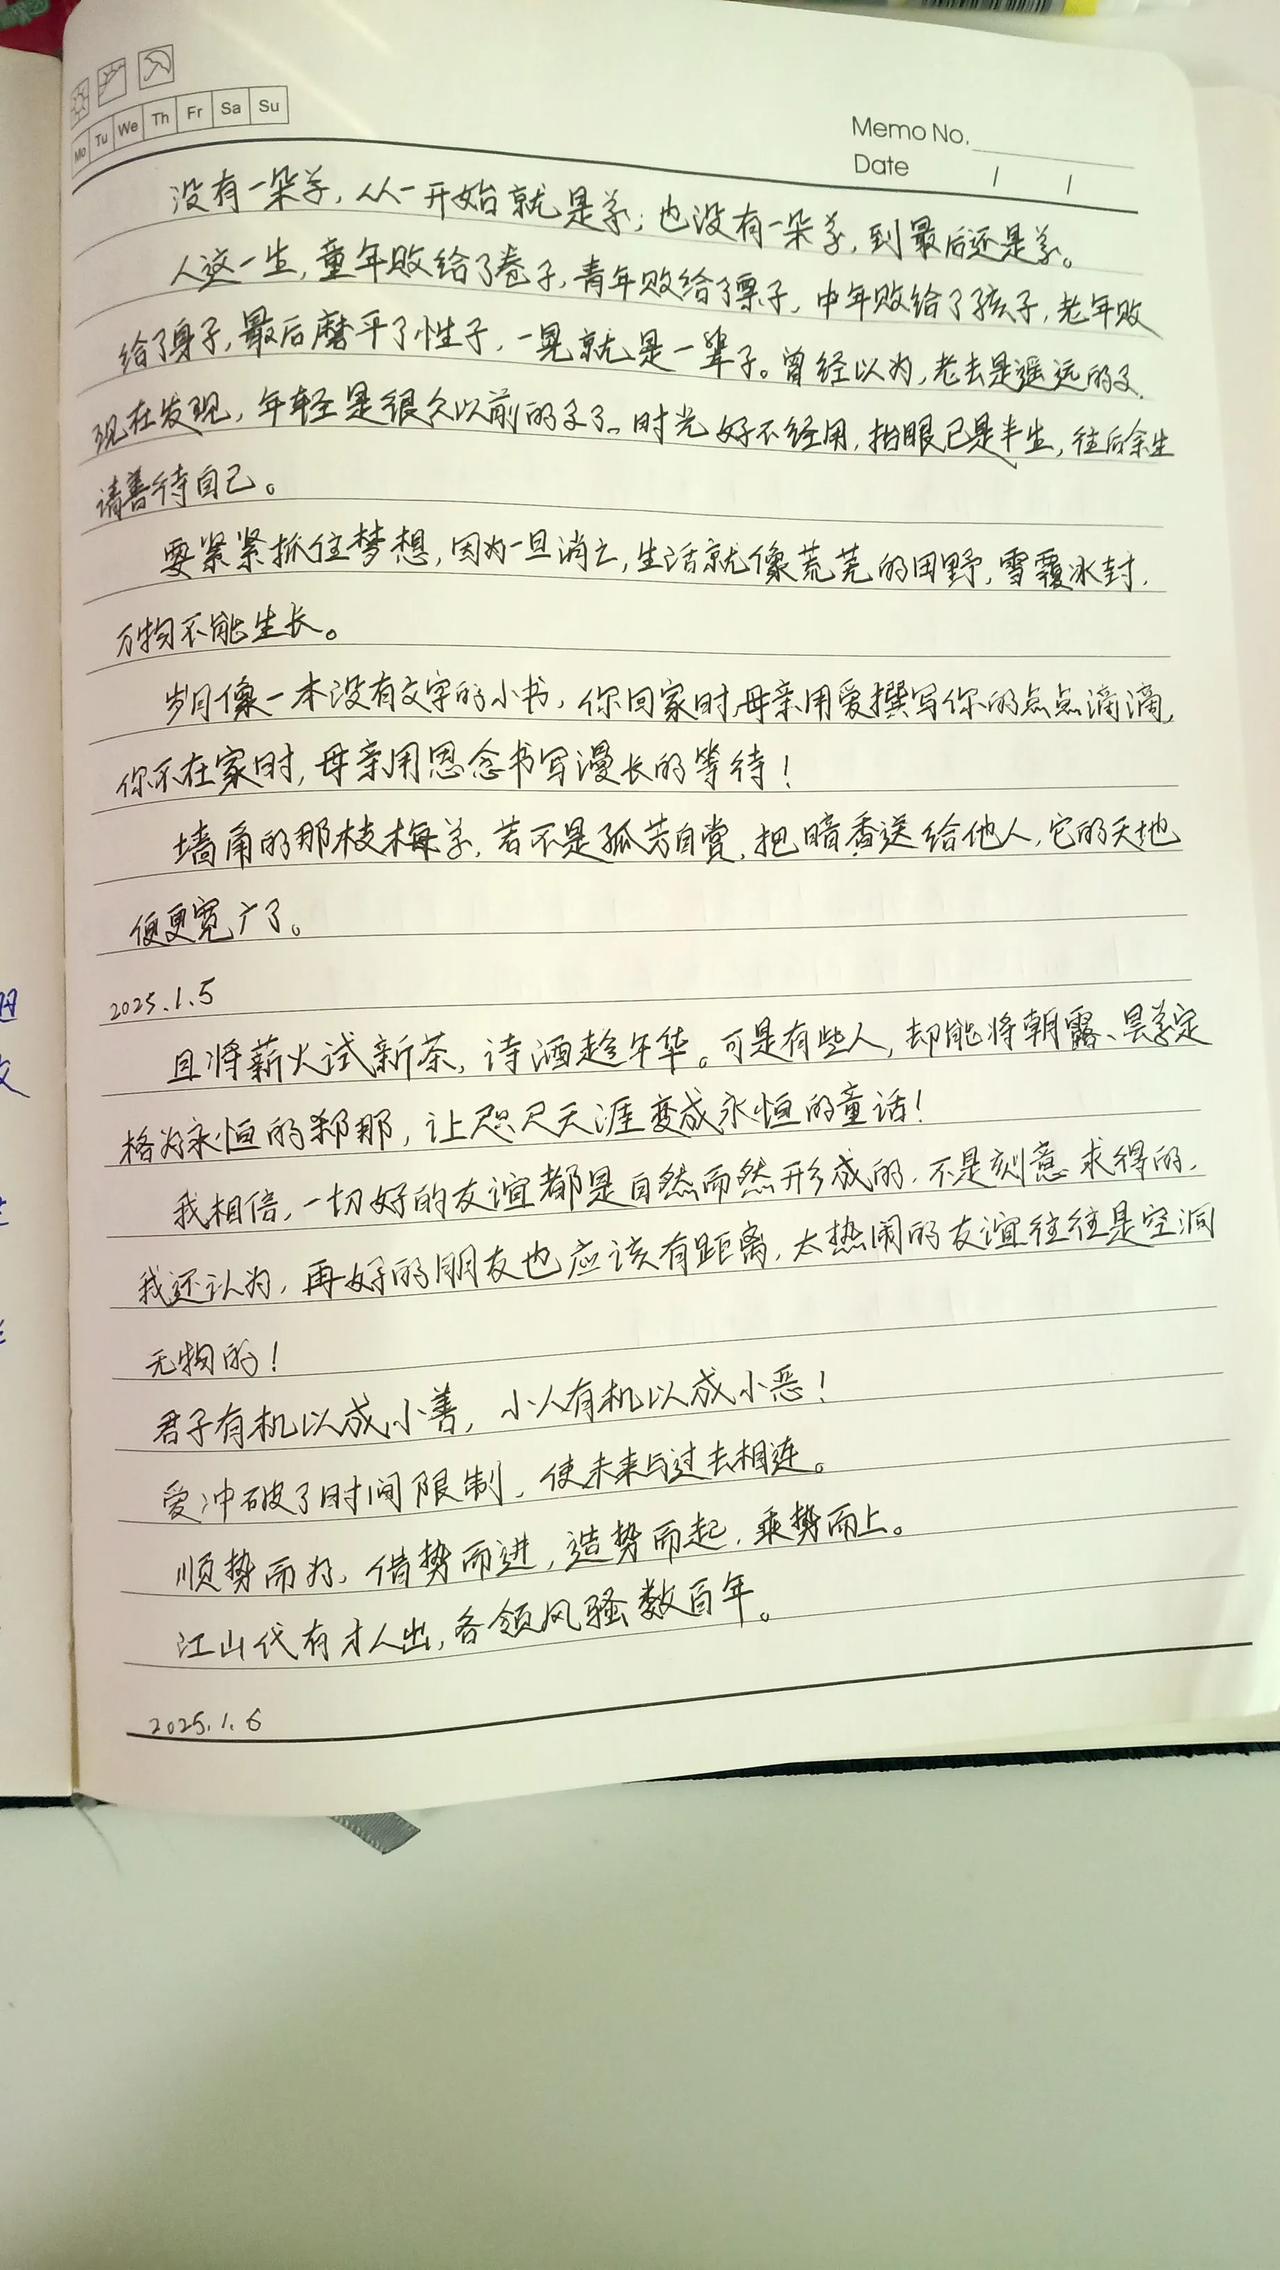 Mo Tu We Th Fr Sa Su
Memo No.
Date / /
没有一朵花,从一开始就是花;也没有一朵花,到最后还是花。
人这一生,童年败给了卷子,青年败给了票子,中年败给了孩子,老年败
给了身子,最后磨平了性子,一晃就是一辈子。曾经以为,老去是遥远的事,
现在发现,年轻是很久以前的事了。时光好不经用,抬眼已是半生,往后余生
请善待自己。
要紧紧抓住梦想,因为一旦消亡,生活就像荒芜的田野,雪覆冰封,
万物不能生长。
岁月像一本没有文字的小书,你回家时,母亲用爱撰写你的点点滴滴,
你不在家时,母亲用思念书写漫长的等待!
墙角的那枝梅花,若不是孤芳自赏,把暗香送给他人,它的天地
便更宽广了。
2025.1.5
且将薪火试新茶,诗酒趁年华。可是有些人,却能将朝露、昙花定
格为永恒的刹那,让咫尺天涯变成永恒的童话!
我相信,一切好的友谊都是自然而然形成的,不是刻意求得的,
我还认为,再好的朋友也应该有距离,太热闹的友谊往往是空洞
无物的!
君子有机以成小善,小人有机以成小恶!
爱冲破了时间限制,使未来与过去相连。
顺势而为,借势而进,造势而起,乘势而上。
江山代有才人出,各领风骚数百年。
2025.1.6